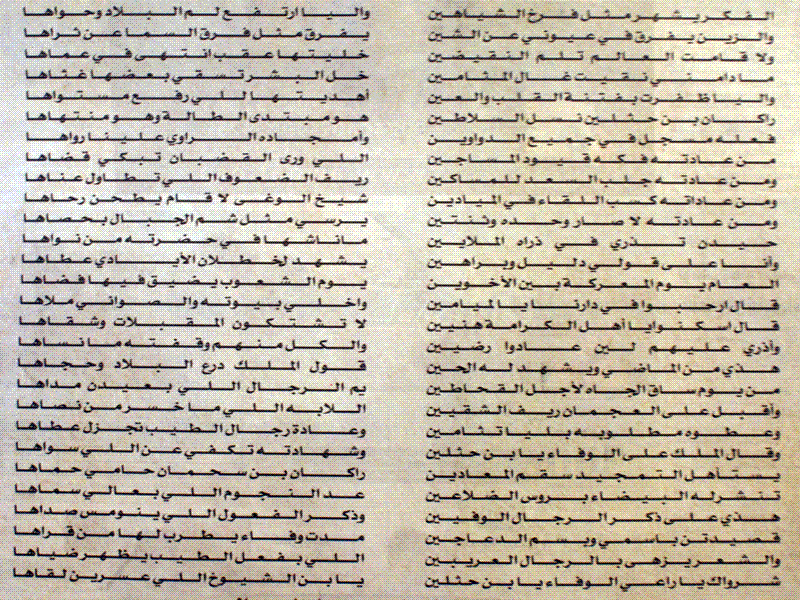 الفكر يشهر مثل فرخ الشياهين والينا ارتفع لم البلاد وحواها
والزين يفرق في عيوني عن الشين يفرق مثل فرق السما عن ثراها
ولا قامت العالم تلم النقيضين خليتها عقب انتهى في عماها
مادامني نقيت غال المثامين خل البشر تسقي بعضها غثاها
والينا ظفرت بفتنة القلب والعين أهديتها للي رفع مستواها
راكان بن حثلين نسل السلاطين هو مبتدى الطالة وهو منتهاها
فعله مسجل في جميع الدواوين وأمجاده الراوي علينا رواها
من عادته فكه قيود المساجين اللي ورى القضبان تبكي قضاها
ومن عادته جلب السعد للمساكين ريف الضعوف اللي تطاول عناها
ومن عاداته كسب اللقاء في الميادين شيخ الوغى لا قام يطحن رحاها
ومن عادته لا صار وحده وثنتين يرسي مثل شم الجبال بحصاها
حيدن تذري في ذراه الملايين ماناشها في حضرته من نواها
وأنا على قولي دليل وبراهين يشهد لخطلان الأيادي عطاها
العام يوم المعركة بين الأخوين يوم الشعوب يضيق فيها فضاها
قال ارحبوا في دارنا يا الميامين واخلي بيوته والصواني ملاها
قال اسكنوا يا أهل الكرامة هنيين لا تشتكون المقبلات وشقاها
وأذري عليهم لين عادوا رضيين والكل منهم وقفته ما نساها
هذي من الماضي ويشهد له الحين قول الملك درع البلاد وحجاها
من يوم ساق الجاه لأجل القحاطين يم الرجال اللي بعيدن مداها
وأقبل على العجمان ريف الشقيين اللابه اللي ما خسر من نصاها
وعطوه مطلوبه بليا تثامين وعادة رجال الطيب تجزل عطاها
وقال الملك على الوفاء يا بن حثلين وشهادته تكفي عن اللي سواها
يستأهل التمجيد سقم المعادين راكان بن سحمان حامي حماها
تنشر له البيضاء بروس الضلاعين عد النجوم اللي بعالي سماها
هذي على ذكر الرجال الوفيين وذكر الفعول اللي ينومس صداها
قصيدتن باسمي وبسم الدعاجين مدت وفاء يطرب لها من قراها
والشعر يزهى بالرجال العريبين اللي بفعل الطيب يظهر ضياها
شرواك يا راعي الوفاء يا بن حثلين يا بن الشيوخ اللي عسرين لقاها